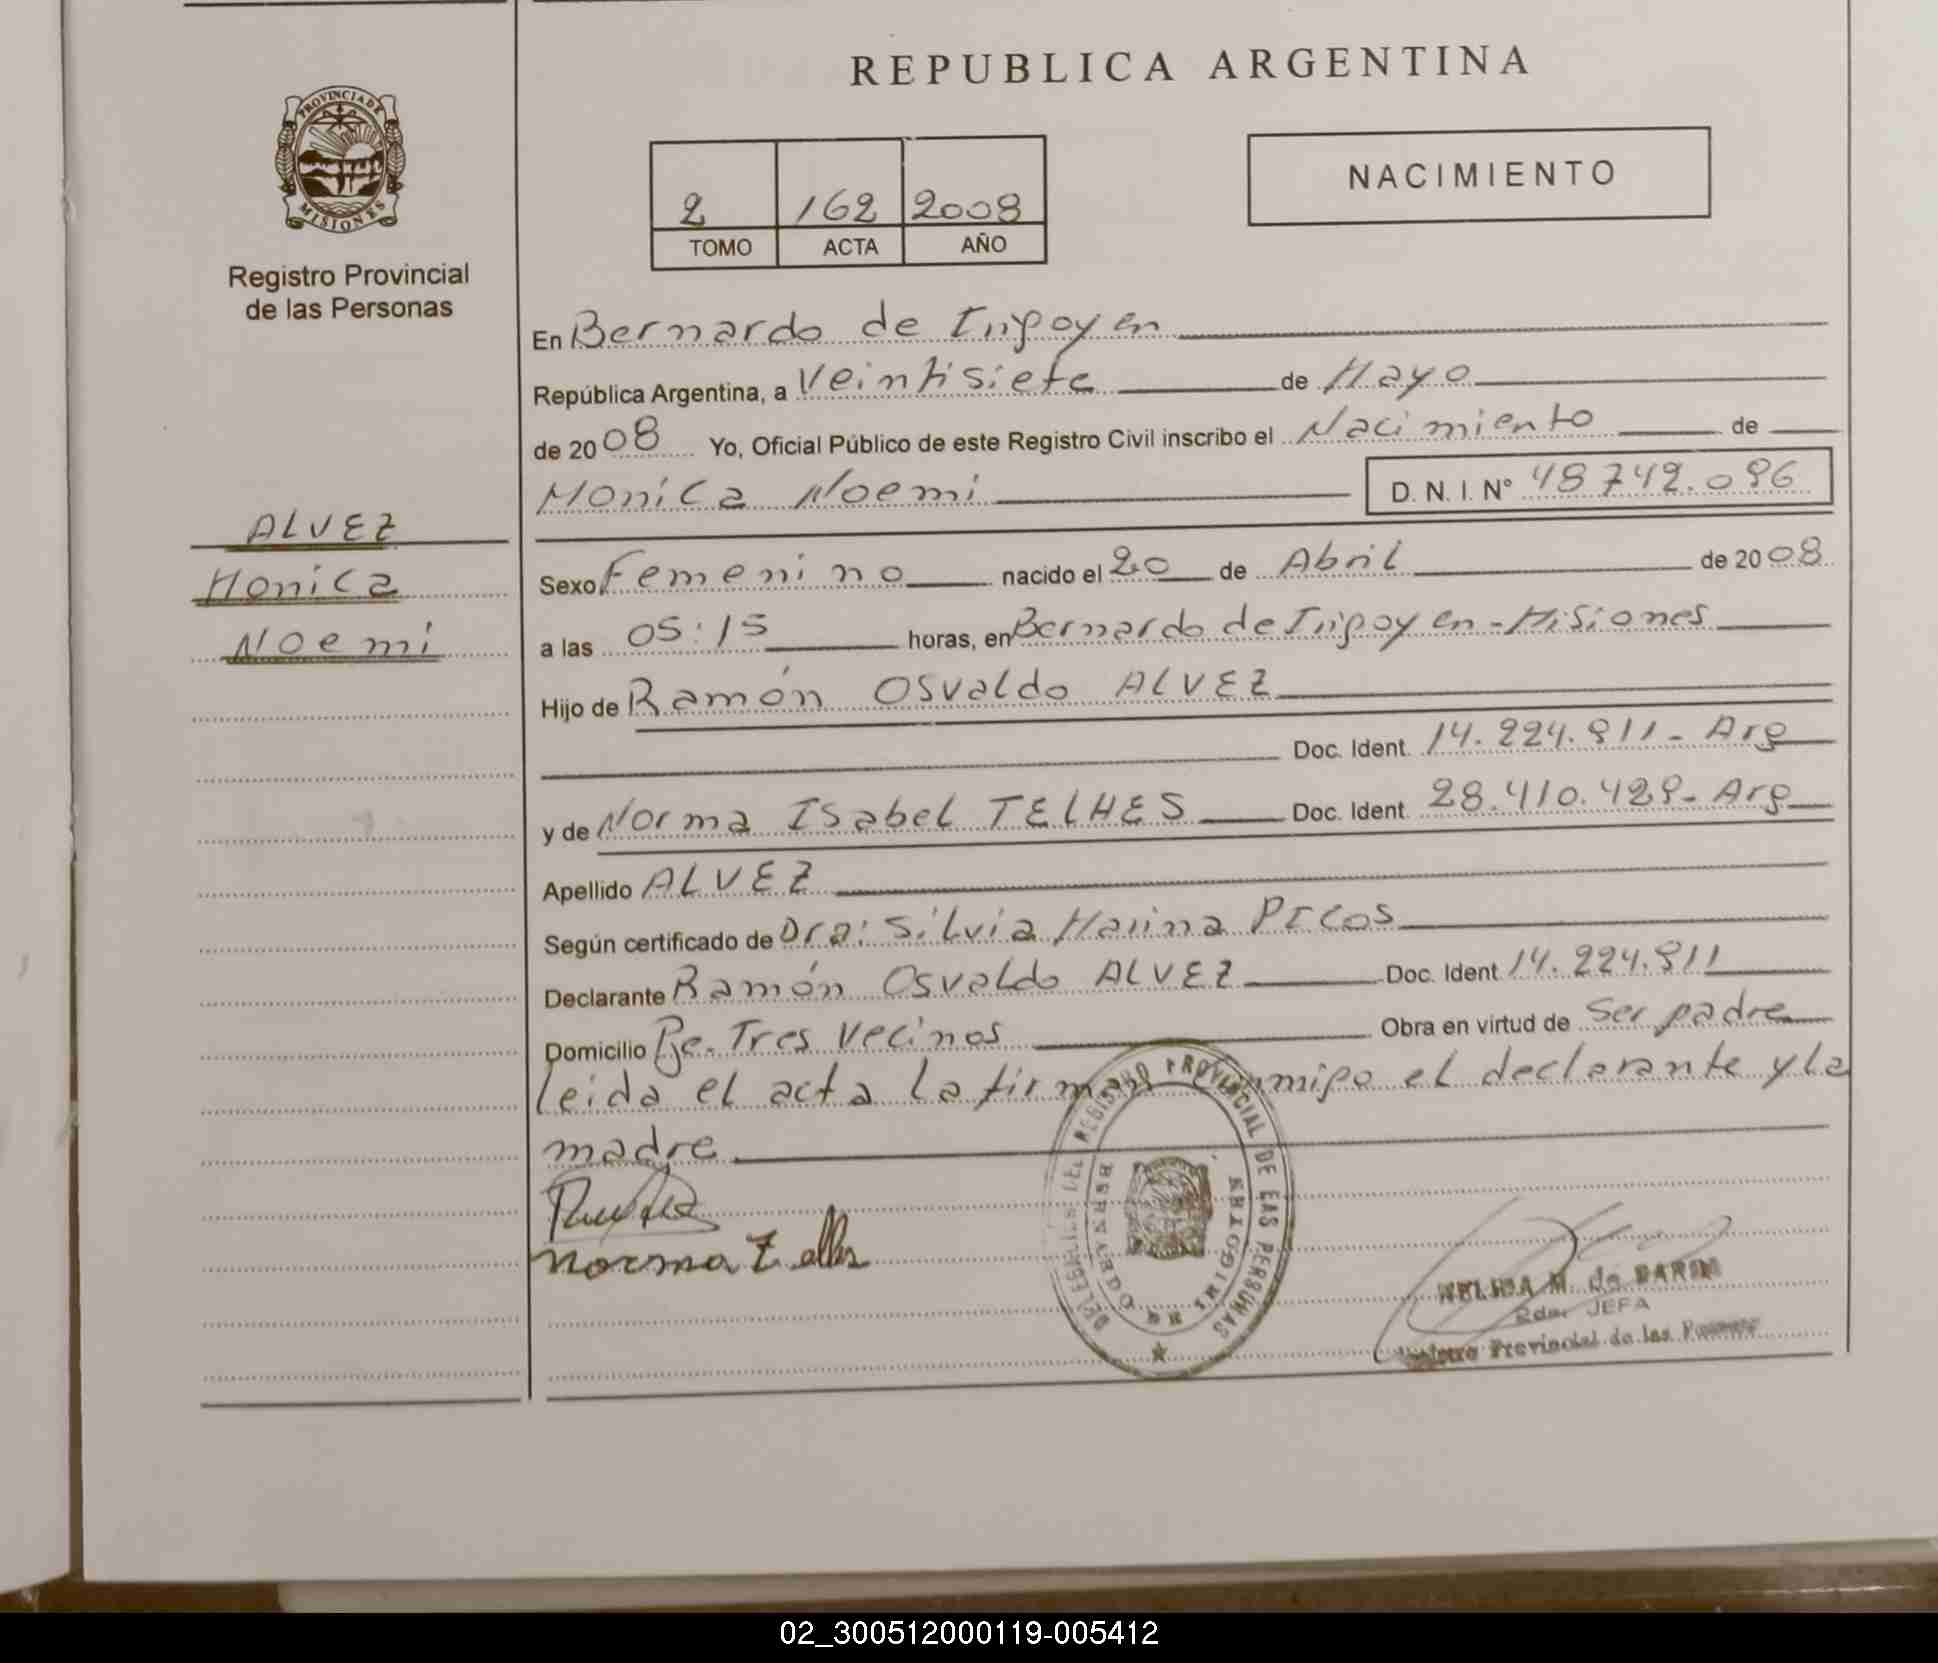 REPUBLICA ARGENTINA
PROVINCIA DE MISIONES
Registro Provincial
de las Personas
2 162 2008
TOMO ACTA AÑO
NACIMIENTO
En Bernardo de Irigoyen
República Argentina, a Veintisiete de Mayo
de 2008 Yo, Oficial Público de este Registro Civil inscribo el Nacimiento de
Monica Noemi D. N. I. N° 48 742.096
ALVEZ
Monica
Noemi
Sexo Femenino nacido el 20 de Abril de 2008
a las 05:15 horas, en Bernardo de Irigoyen - Misiones
Hijo de Ramón Osvaldo ALVEZ
Doc. Ident. 14.224.911 - Arg
y de Norma Isabel TELHES Doc. Ident. 28.410.429 - Arg
Apellido ALVEZ
Según certificado de Dra: Silvia Marina PICOS
Declarante Ramón Osvaldo ALVEZ Doc. Ident 14.224.911
Domicilio Pje. Tres Vecinos Obra en virtud de Ser padre
leida el acta la firman conmigo el declarante y la
madre
Norma
DELEGACIÓN DEL REGISTRO PROVINCIAL DE LAS PERSONAS
BERNARDO DE IRIGOYEN
NELIDA M. de
JEFA
Registro Provincial de las Personas
02_300512000119-005412